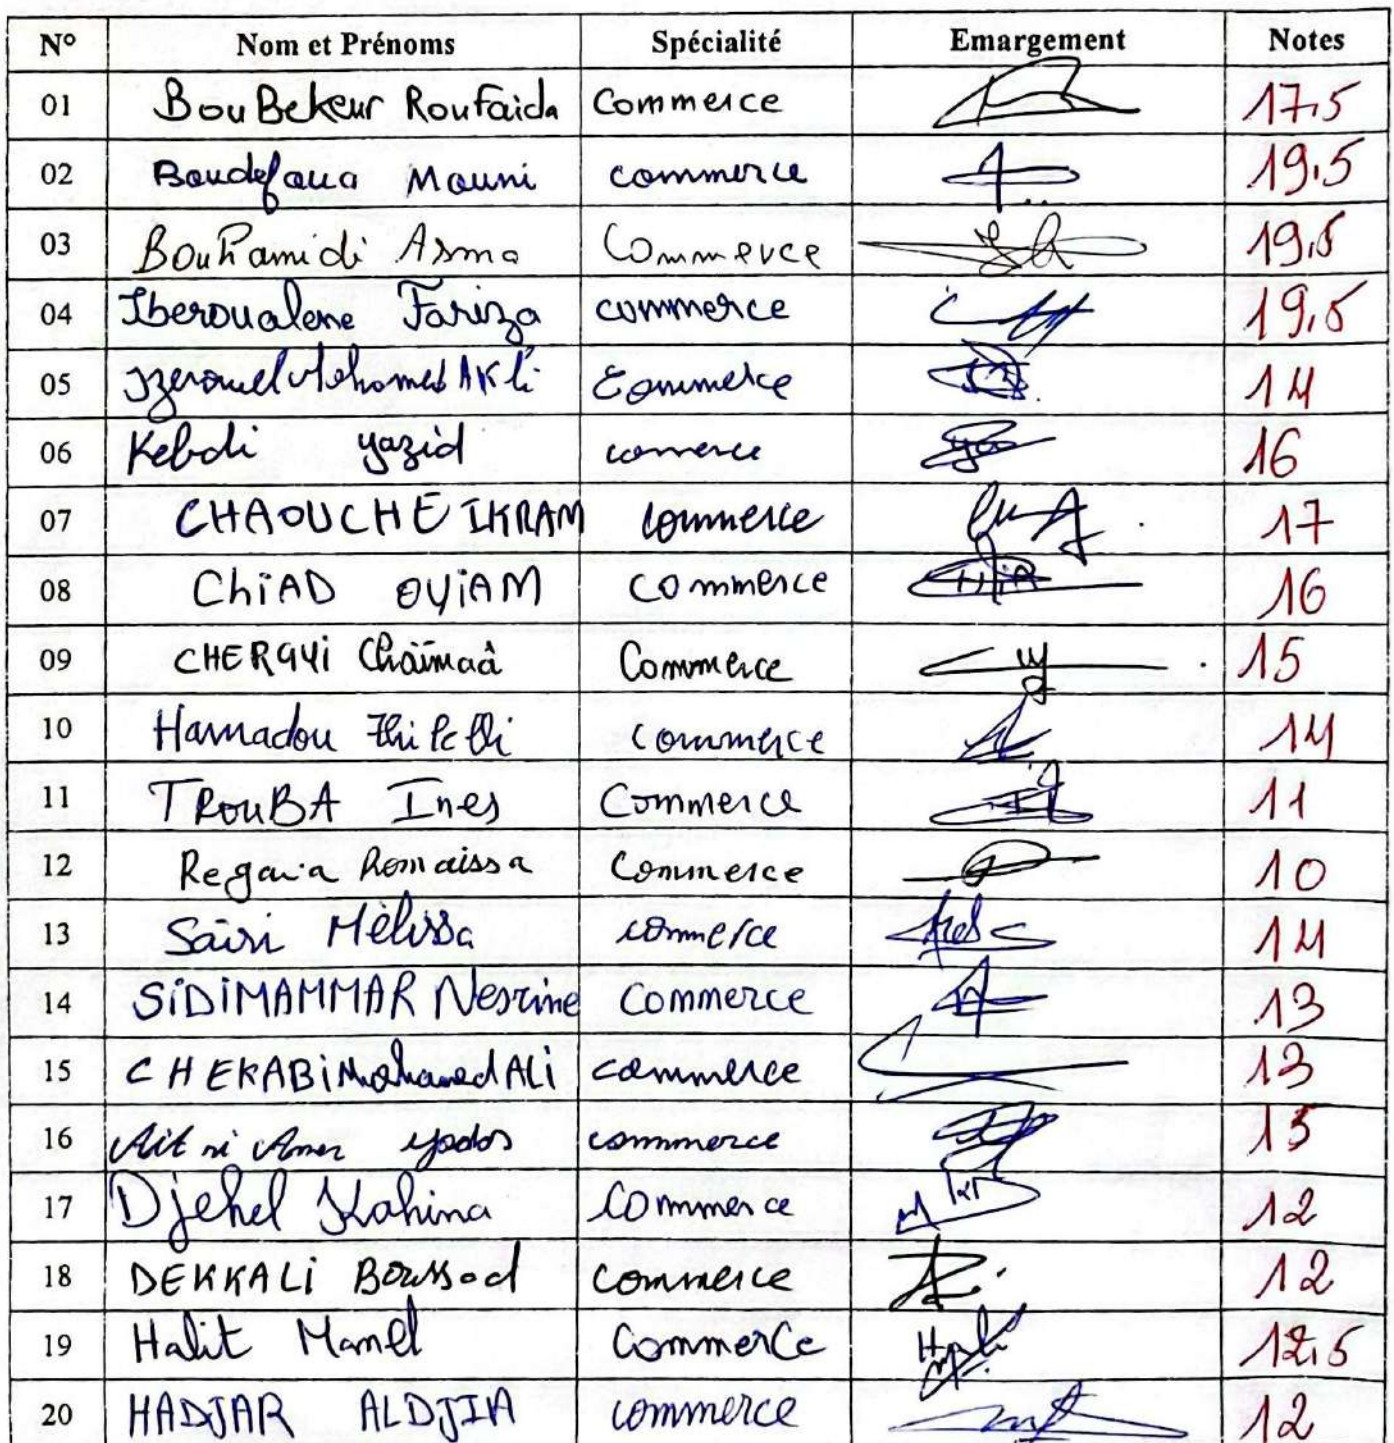 N° Nom et Prénoms Spécialité Emargement Notes
01 BouBekeur Roufaida Commerce 17,5
02 Boudefoua Mouni commerce 19,5
03 Bouhamidi Asma Commerce 19,5
04 Iberoualene Fariza commerce 19,5
05 Izerouel Mohamed AKli Commerce 14
06 Kebdi yazid comerce 16
07 CHAOUCHE IKRAM commerce 17
08 ChiAD OUiAM commerce 16
09 CHERGUi Chaïmaâ Commerce 15
10 Hamadou commerce 14
11 TRouBA Ines Commerce 11
12 Romaissa Commerce 10
13 Saïsi Mèlissa commerce 14
14 SiDiMAMMAR Nesrine Commerce 13
15 CHEKABi Mohamed ALi commerce 13
16 Ait ni Amer commerce 13
17 Djehel Kahina Commerce 12
18 DEKKALi commerce 12
19 Halit Manel CommerCe 12,5
20 HADJAR ALDJIA commerce 12